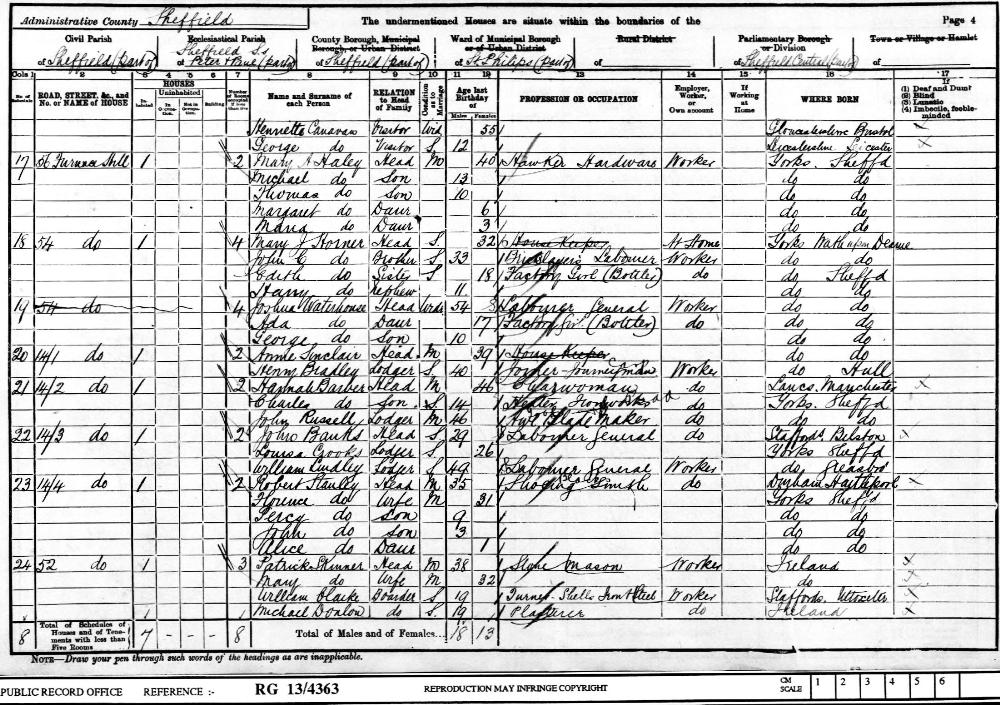 Administrative County Sheffield The undermentioned Houses are situate within the boundaries of the Page 4
Civil Parish Ecclesiastical Parish County Borough, Municipal Borough, or Urban District Ward of Municipal Borough or of Urban District Rural District Parliamentary Borough or Division Town or Village or Hamlet
of Sheffield (part of) of Sheffield S.s Peter & Paul (part of) of Sheffield (part of) of St Philips (part of) of of Sheffield Central (part of) of
Cols 1 2 3 4 5 6 7 8 9 10 11 12 13 14 15 16 17
No. of Schedule ROAD, STREET, &c., and No. or NAME of HOUSE HOUSES Inhabited Uninhabited In Occupation Not in Occupation Building Number of Rooms occupied if less than five Name and Surname of each Person RELATION to Head of Family Condition as to Marriage Age last Birthday of Males Females PROFESSION OR OCCUPATION Employer, Worker, or Own account If Working at Home WHERE BORN If (1) Deaf and Dumb (2) Blind (3) Lunatic (4) Imbecile, feeble-minded
Henrietta Canavan Visitor Wid 55 Gloucestershire Bristol
George do Visitor S 12 Leicestershire Leicester
17 56 Furnace Hill 1 2 Mary A Haley Head M 40 Hawker Hardware Worker Yorks. Sheffd
Michael do Son 13 do do
Thomas do Son 10 do do
Margaret do Daur 6 do do
Maria do Daur 3 do do
18 54 do 1 4 Mary J Horner Head S 32 House Keeper At Home Yorks Wath upon Dearne
John C do Brother S 33 Bricklayers Labourer Worker do do
Edith do Sister S 18 Factory Girl (Bottler) do do Sheffd
Harry do Nephew 11 do do
19 54 do 4 Joshua Waterhouse Head Widr 54 Labourer General Worker do do
Ada do Daur 17 Factory Girl (Bottler) do do do
George do Son 10 do do
20 14/1 do 1 2 Annie Sinclair Head M 39 House Keeper do do
Henry Bradley Lodger S 40 Joiner Journeyman Worker do Hull
21 14/2 do 1 2 Hannah Barber Head M 46 Charwoman do Lancs. Manchester
Charles do Son S 14 Heater Ironworks do Yorks. Sheffd
John Russell Lodger M 46 Awl Blade Maker do do do
22 14/3 do 1 2 John Banks Head S 29 Labourer General do Staffords. Bilston
Louisa Crooks Lodger S 26 Yorks Sheffd
William Lindley Lodger S 49 Labourer General Worker do
23 14/4 do 1 2 Robert Stanley Head M 35 Shoeing Smith do Durham Hartlepool
Florence do Wife M 31 Yorks Sheffd
Percy do Son 9 do do
John do Son 3 do do
Alice do Daur 1 do do
24 52 do 1 3 Patrick Skinner Head M 38 Stone Mason Worker Ireland
Mary do Wife M 32 do
William Clarke Boarder S 19 Turner Shells Iron & Steel Worker Staffords. Uttoxeter
Michael Donlon do S 19 Plasterer do Ireland
8 Total of Schedules of Houses and of Tenements with less than Five Rooms 7 - - - 8 Total of Males and of Females... 18 13
NOTE—Draw your pen through such words of the headings as are inapplicable.
PUBLIC RECORD OFFICE REFERENCE :- RG 13/4363 REPRODUCTION MAY INFRINGE COPYRIGHT CM SCALE 1 2 3 4 5 6